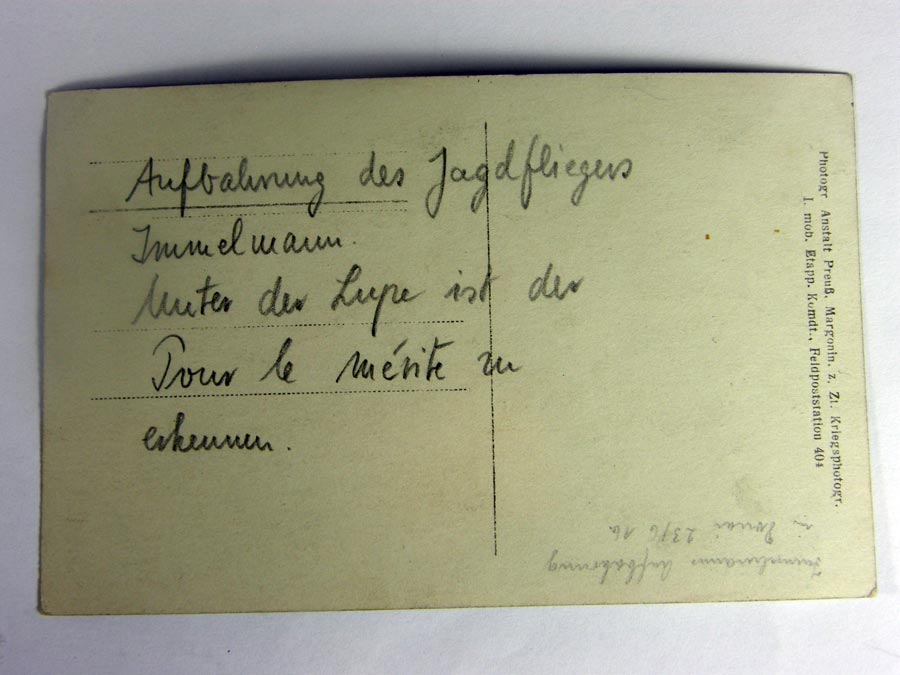 Aufbahrung des Jagdfliegers
Immelmann.
Unter der Lupe ist der
Pour le mérite zu
erkennen.
Photogr. Anstalt Preuß. Margonin. z. Zt. Kriegsphotogr.
I. mob. Etapp. Komdt., Feldpoststation 404
Immelmanns Aufbahrung
in Douai 23/6 16